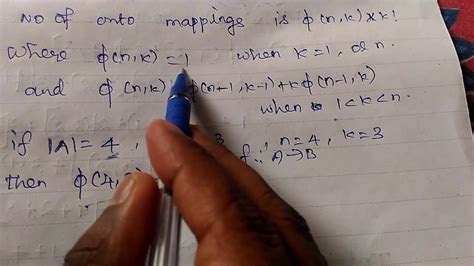 No of onto mappings is ϕ(n,k) x k!
where ϕ(n,k) = 1 when k=1, or n.
and ϕ(n,k) ϕ(n+1, k-1) + k ϕ(n-1, k)
when 1<k<n.
if |A| = 4, 3 f: A→B n=4, k=3
then ϕ(4,